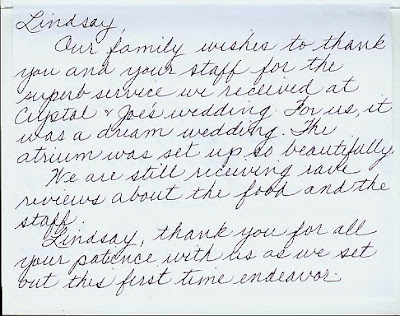 Lindsay,
Our family wishes to thank
you and your staff for the
superb service we received at
Crystal & Joe's wedding. For us, it
was a dream wedding. The
atrium was set up so beautifully.
We are still receiving rave
reviews about the food and the
staff.
Lindsay, thank you for all
your patience with us as we set
out this first time endeavor.